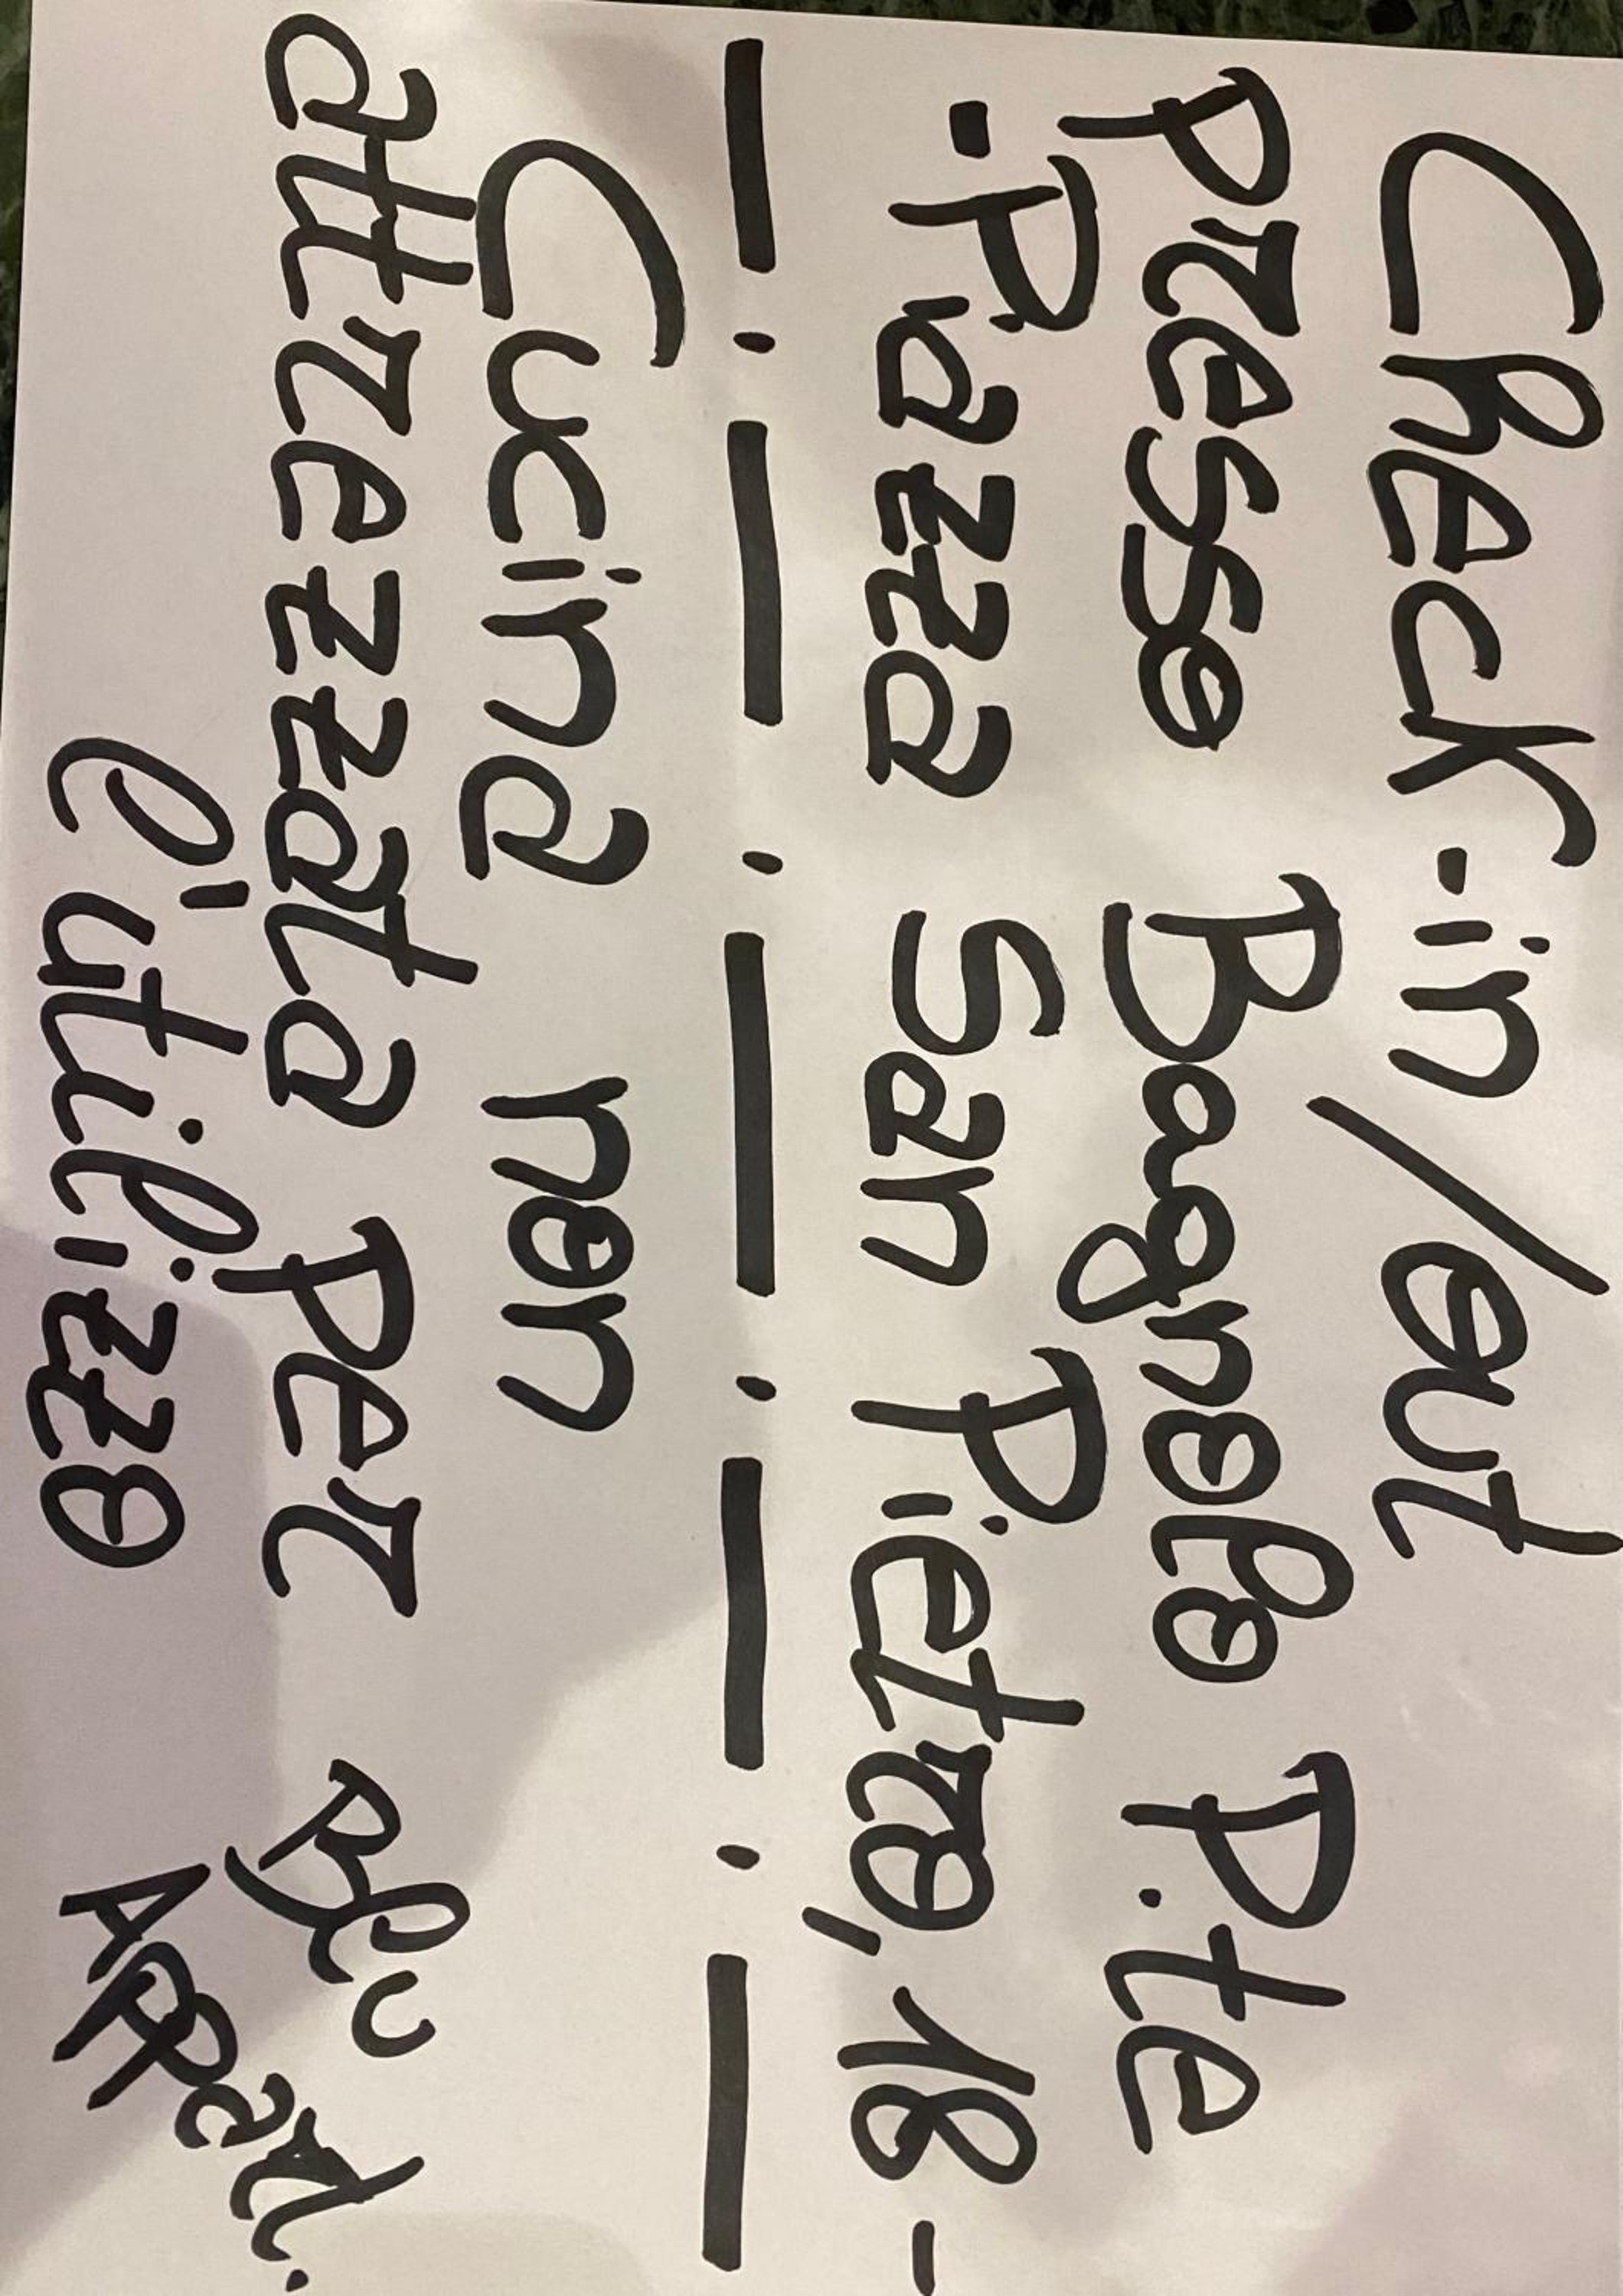 Check-in/out
presso Bagnolo P.te
. Piazza San Pietro, 18 -
Cucina non
attrezzata per
l'utilizzo
Blu
Appart.